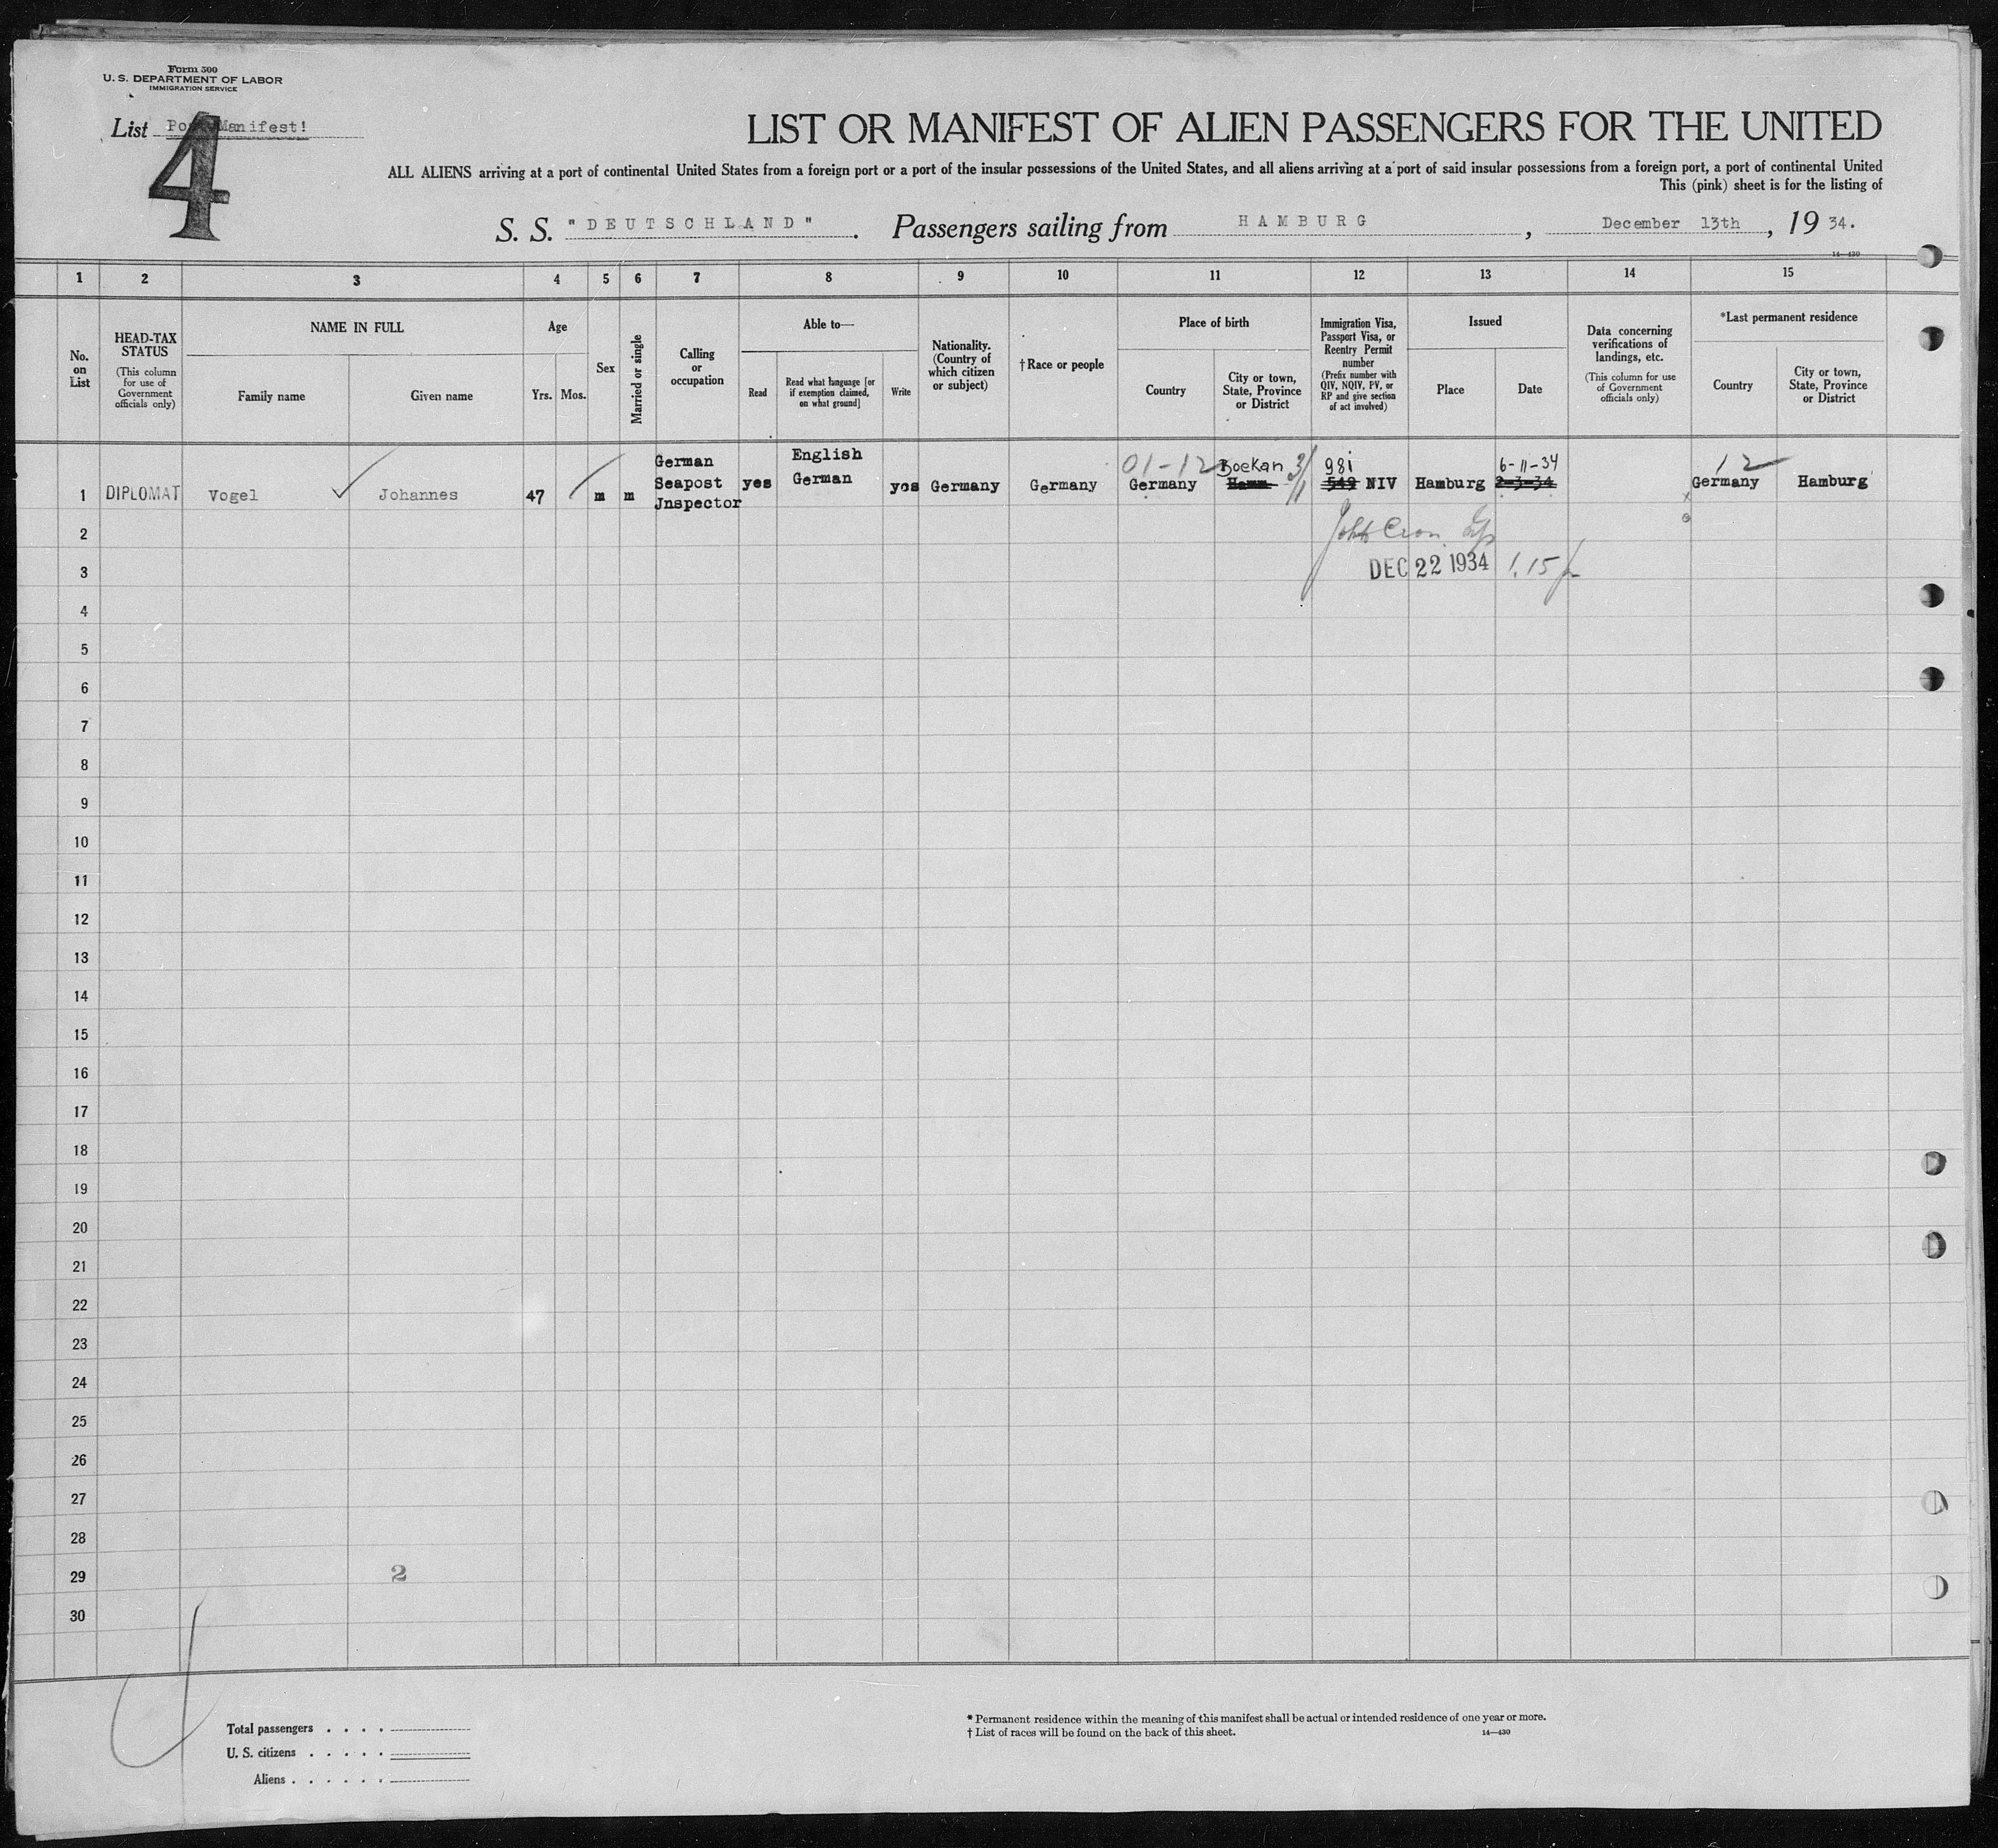 Form 500
U. S. DEPARTMENT OF LABOR
IMMIGRATION SERVICE
List Manifest!
4
LIST OR MANIFEST OF ALIEN PASSENGERS FOR THE UNITED
ALL ALIENS arriving at a port of continental United States from a foreign port or a port of the insular possessions of the United States, and all aliens arriving at a port of said insular possessions from a foreign port, a port of continental United
This (pink) sheet is for the listing of
S. S. "DEUTSCHLAND". Passengers sailing from HAMBURG, December 13th, 19 34.
14—430
1 2 3 4 5 6 7 8 9 10 11 12 13 14 15
No. on List
HEAD-TAX STATUS
(This column for use of Government officials only)
NAME IN FULL
Family name
Given name
Age
Yrs. Mos.
Sex
Married or single
Calling or occupation
Able to—
Read
Read what language [or if exemption claimed, on what ground]
Write
Nationality. (Country of which citizen or subject)
† Race or people
Place of birth
Country
City or town, State, Province or District
Immigration Visa, Passport Visa, or Reentry Permit number
(Prefix number with QIV, NQIV, PV, or RP and give section of act involved)
Issued
Place
Date
Data concerning verifications of landings, etc.
(This column for use of Government officials only)
*Last permanent residence
Country
City or town, State, Province or District
1 DIPLOMAT Vogel Johannes 47 m m German Seapost Jnspector yes English German yes Germany Germany 01-12 Germany Hamm 981 549 NIV Hamburg 6-11-34 2-3-34 12 Germany Hamburg
2
3 DEC 22 1934 1.15
4
5
6
7
8
9
10
11
12
13
14
15
16
17
18
19
20
21
22
23
24
25
26
27
28
29 2
30
Total passengers . . . .
U. S. citizens . . . . .
Aliens . . . . . .
* Permanent residence within the meaning of this manifest shall be actual or intended residence of one year or more.
† List of races will be found on the back of this sheet.
14—430